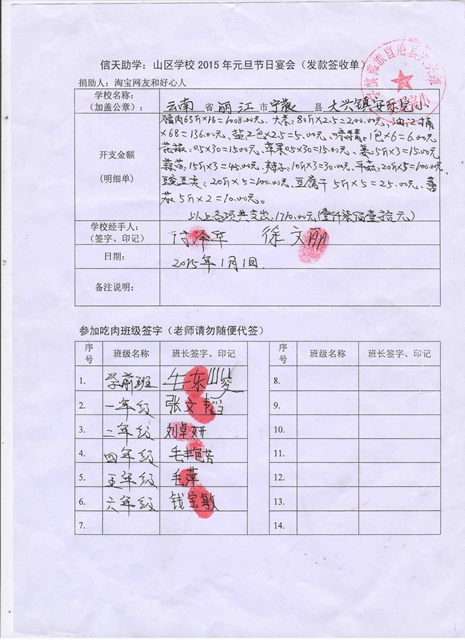 信天助学：山区学校 2015 年元旦节日宴会（发款签收单）
捐助人：淘宝网友和好心人
学校名称：
（加盖公章）：
云南 省 丽江 市 宁蒗 县 大兴镇安乐完小
开支金额
（明细单）
猪肉63斤×16=1008.00元、大米：80斤×2.5=200.00元、油：2桶
×68=136.00元、盐2包×2.5=5.00元、味精：1包×6=6.00元
花椒：0.5×30=15.00元、草果0.5×30=15.00、姜：5斤×3=15.00元
蒜苗：15斤×3=45.00元、辣子：10斤×3=30.00元、20斤×5=100.00元
豌豆尖：20斤×5=100.00元、豆腐干5斤×5=25.00元、
5斤×2=10.00元。
以上各项共支出：1710.00元（壹仟柒佰壹拾元）
学校经手人：
（签字、印记）
泽华 徐文丽
日期：
2015年1月1日
备注说明：
参加吃肉班级签字（老师请勿随便代签）
序号 班级名称 班长签字、印记 序号 班级名称 班长签字、印记
1. 学前班 8.
2. 一年级 张文 9.
3. 二年级 刘卓妍 10.
4. 四年级 11.
5. 五年级 毛萍 12.
6. 六年级 钱宝敏 13.
7. 14.